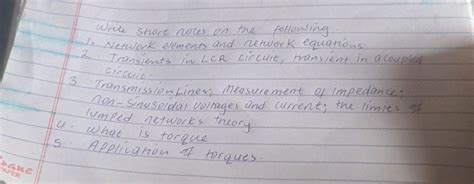 Write short notes on the following.
1. Network elements and network equations.
2. Transients in LCR circuit, transient in a coupled
circuit.
3. Transmission Lines; measurement of impedance;
non-sinusoidal voltages and current; the limits of
lumped networks theory.
4. What is torque
5. Application of torques.